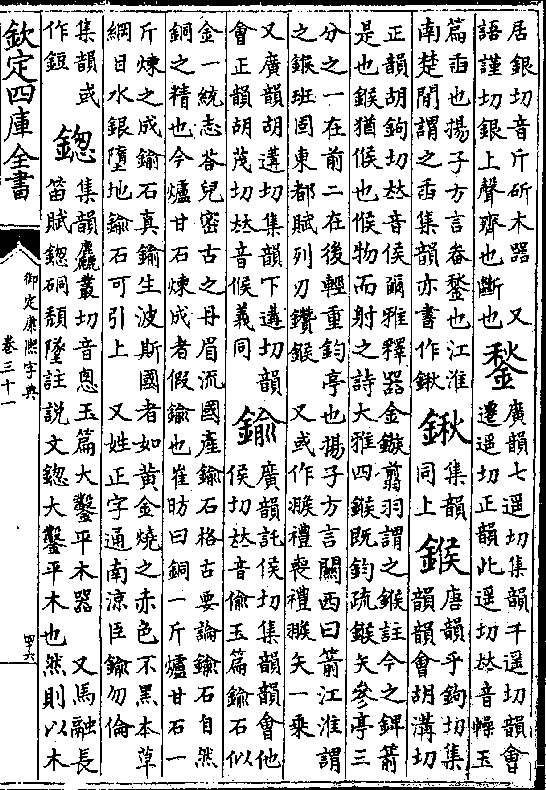 居銀切音斤斫木器 又
語謹切銀上聲齊也斷也
鍫
廣韻七遥切集韻千遥切韻會
遷遥切正韻此遥切𠀤音幧玉
篇臿也揚子方言畚鍫也江淮
南楚閒謂之臿集韻亦書作鍬
鍬
集韻
同上
鍭
唐韻乎鉤切集
韻韻會胡溝切
正韻胡鉤切𠀤音侯爾雅釋器金鏃翦羽謂之鍭註今之錍箭
是也鍭猶候也候物而射之詩大雅四鍭既鈞疏鍭矢參亭三
分之一在前二在後輕重鈞亭也揚子方言關西曰箭江淮謂
之鍭班固東都賦列刃鑽鍭 又或作翭禮喪禮翭矢一乗
又廣韻胡遘切集韻下遘切韻
會正韻胡茂切𠀤音候義同
鍮
廣韻託侯切集韻韻會他
侯切𠀤音偷玉篇鍮石似
金一統志荅兒密古之丹眉流國產鍮石格古要論鍮石自然
銅之精也今爐甘石煉成者假鍮也崔昉曰銅一斤爐甘石一
斤煉之成鍮石真鍮生波斯國者如黄金燒之赤色不黑本草
綱目水銀墮地鍮石可引上 又姓正字通南涼臣鍮勿倫
集韻或
作鋀
鍯
集韻麤叢切音悤玉篇大鑿平木器 又馬融長
笛賦鍯硐隤墜註說文鍯大鑿平木也然則以木
欽定四庫全書
御定康熙字典
卷三十一
四十六